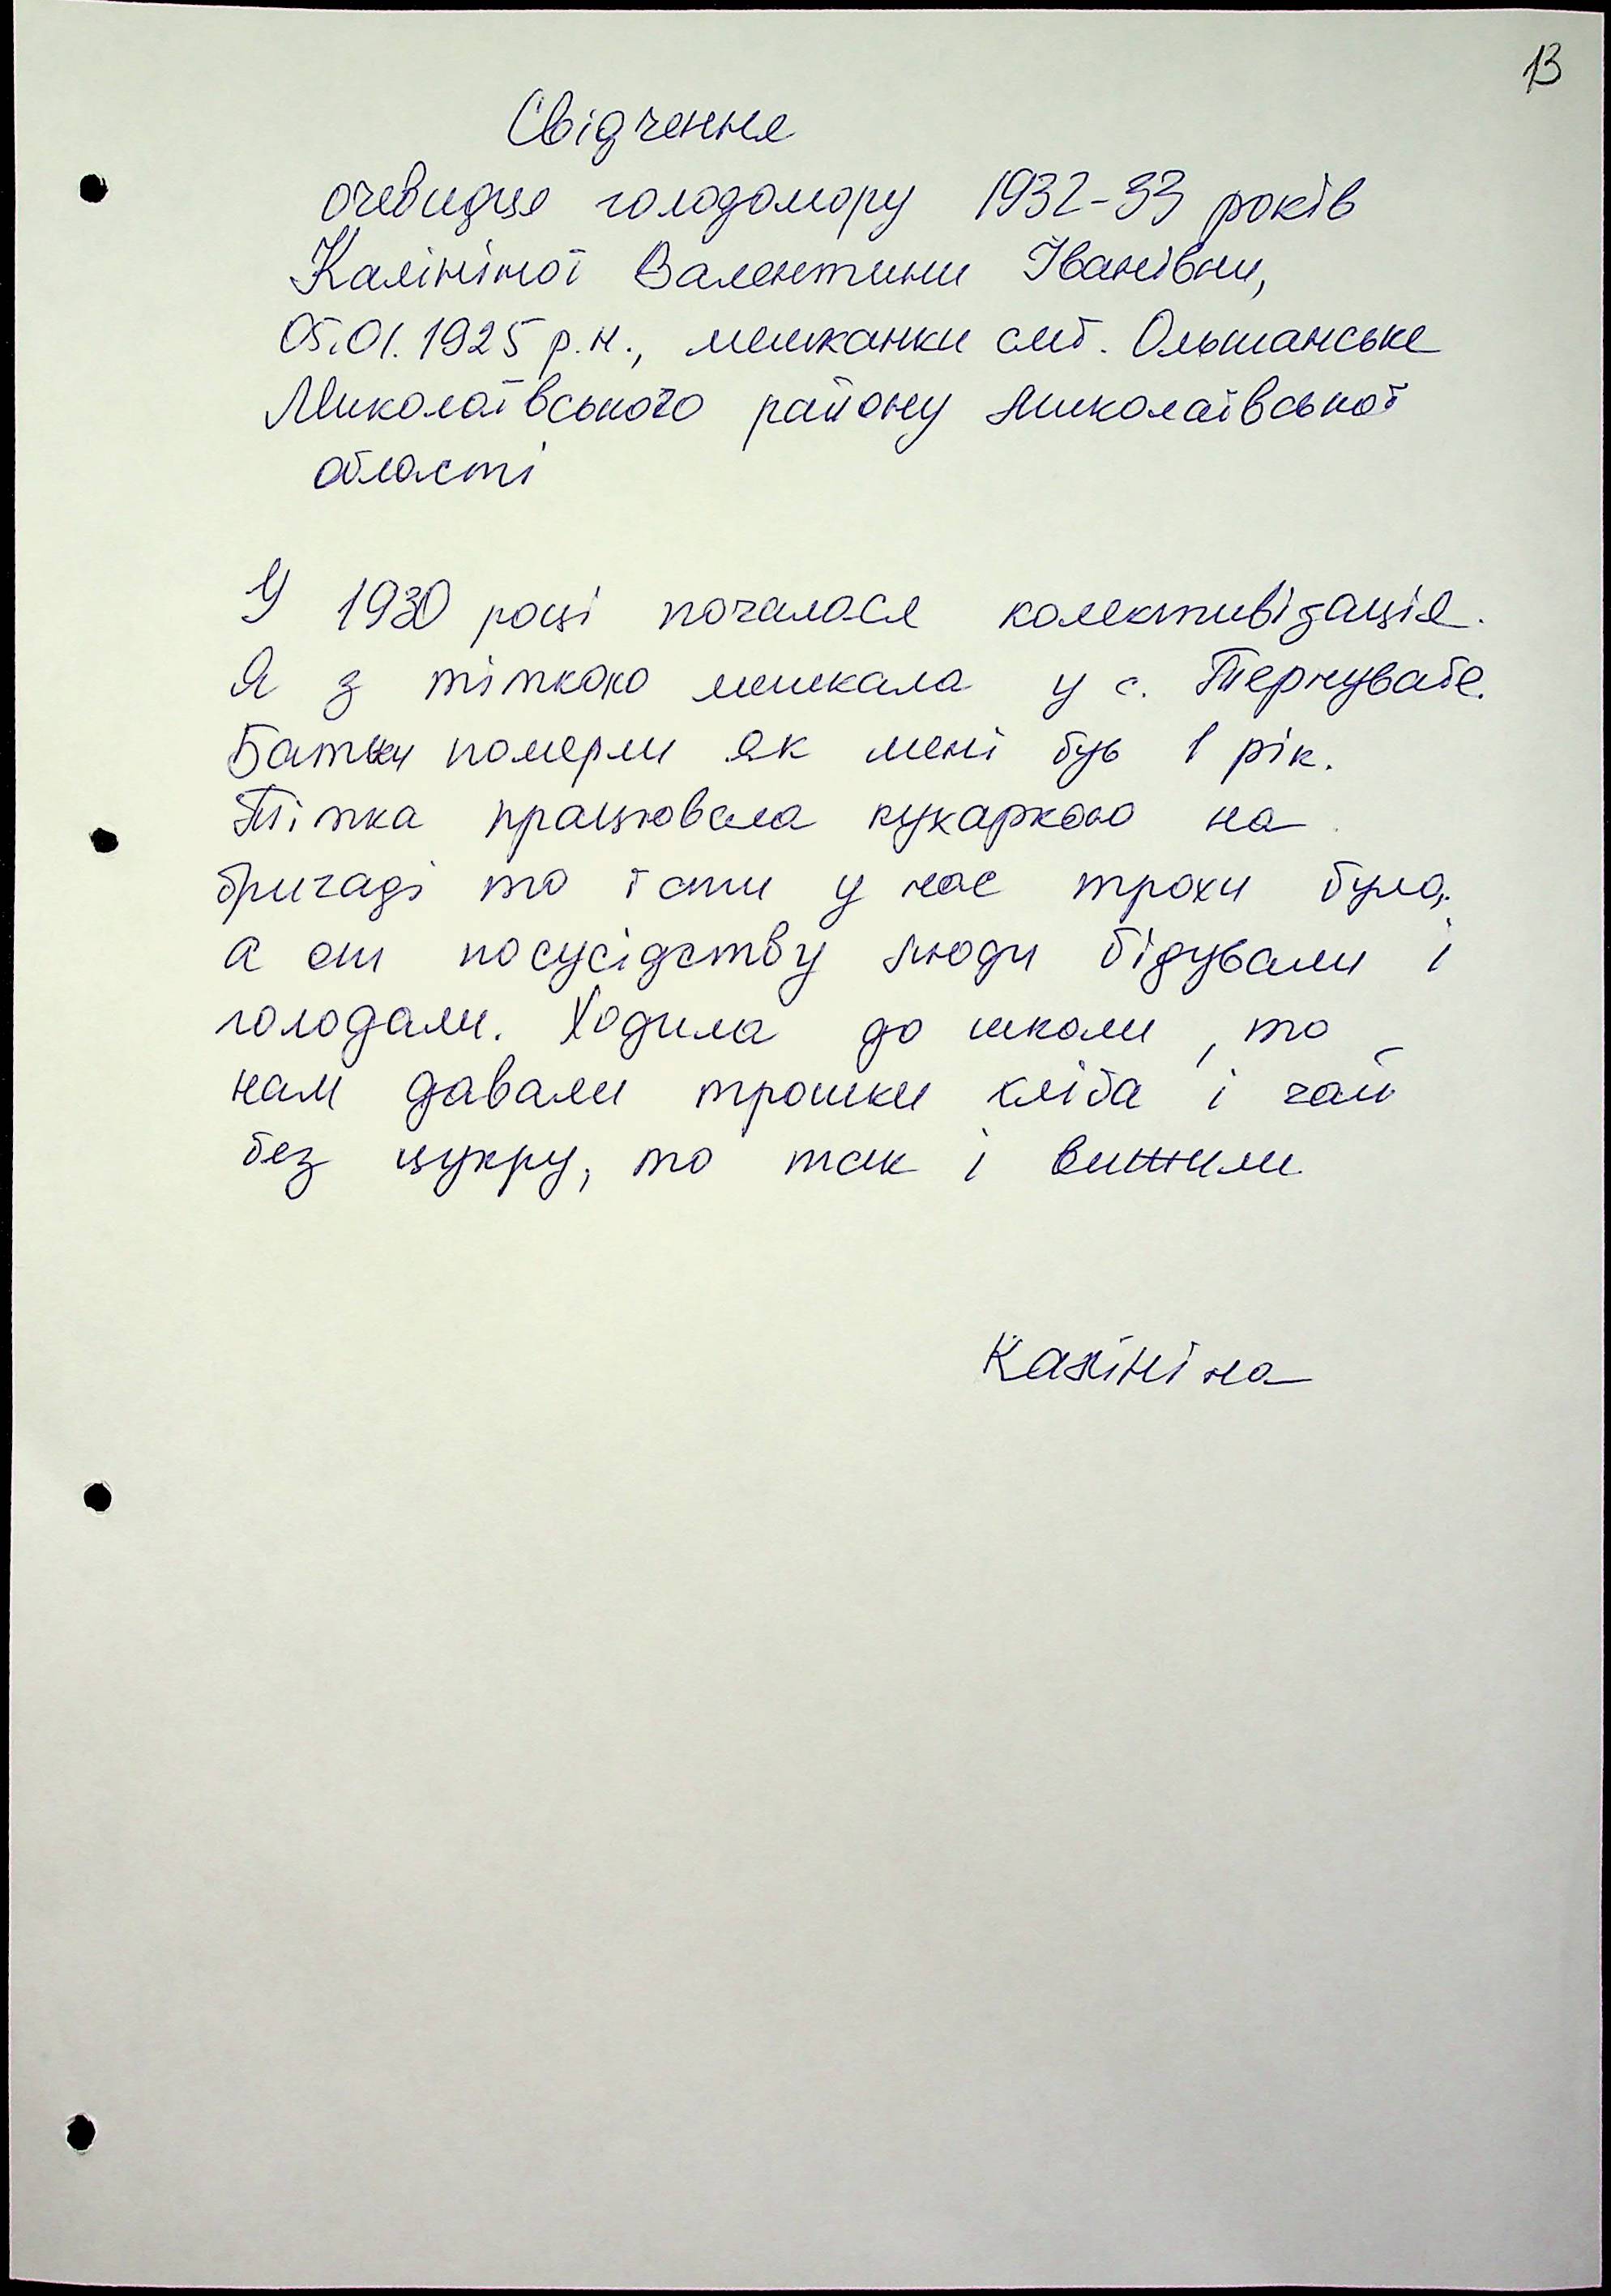 13
Свідчення
очевидця голодомору 1932-33 років
Калініної Валентини Іванівни,
05.01.1925 р.н., мешканки смт. Ольшанське
Миколаївського району Миколаївської
області
У 1930 році почалася колективізація.
Я з тіткою мешкала у с. Тернувате.
Батьки померли як мені був 1 рік.
Тітка працювала кухаркою на
бригаді то їсти у нас трохи було,
а от посусідству люди бідували і
голодали. Ходила до школи, то
нам давали трошки хліба і чай
без цукру, то так і вижили
Калініна